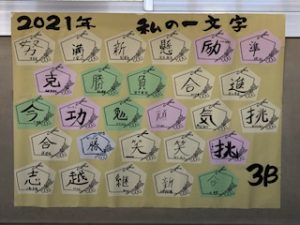 2021年 私の一文字
努 満 新 懸 励 準
克 勝 負 合 進
今 功 勉 気 挑
合 藤 笑 笑 挑
志 越 継 新
3B